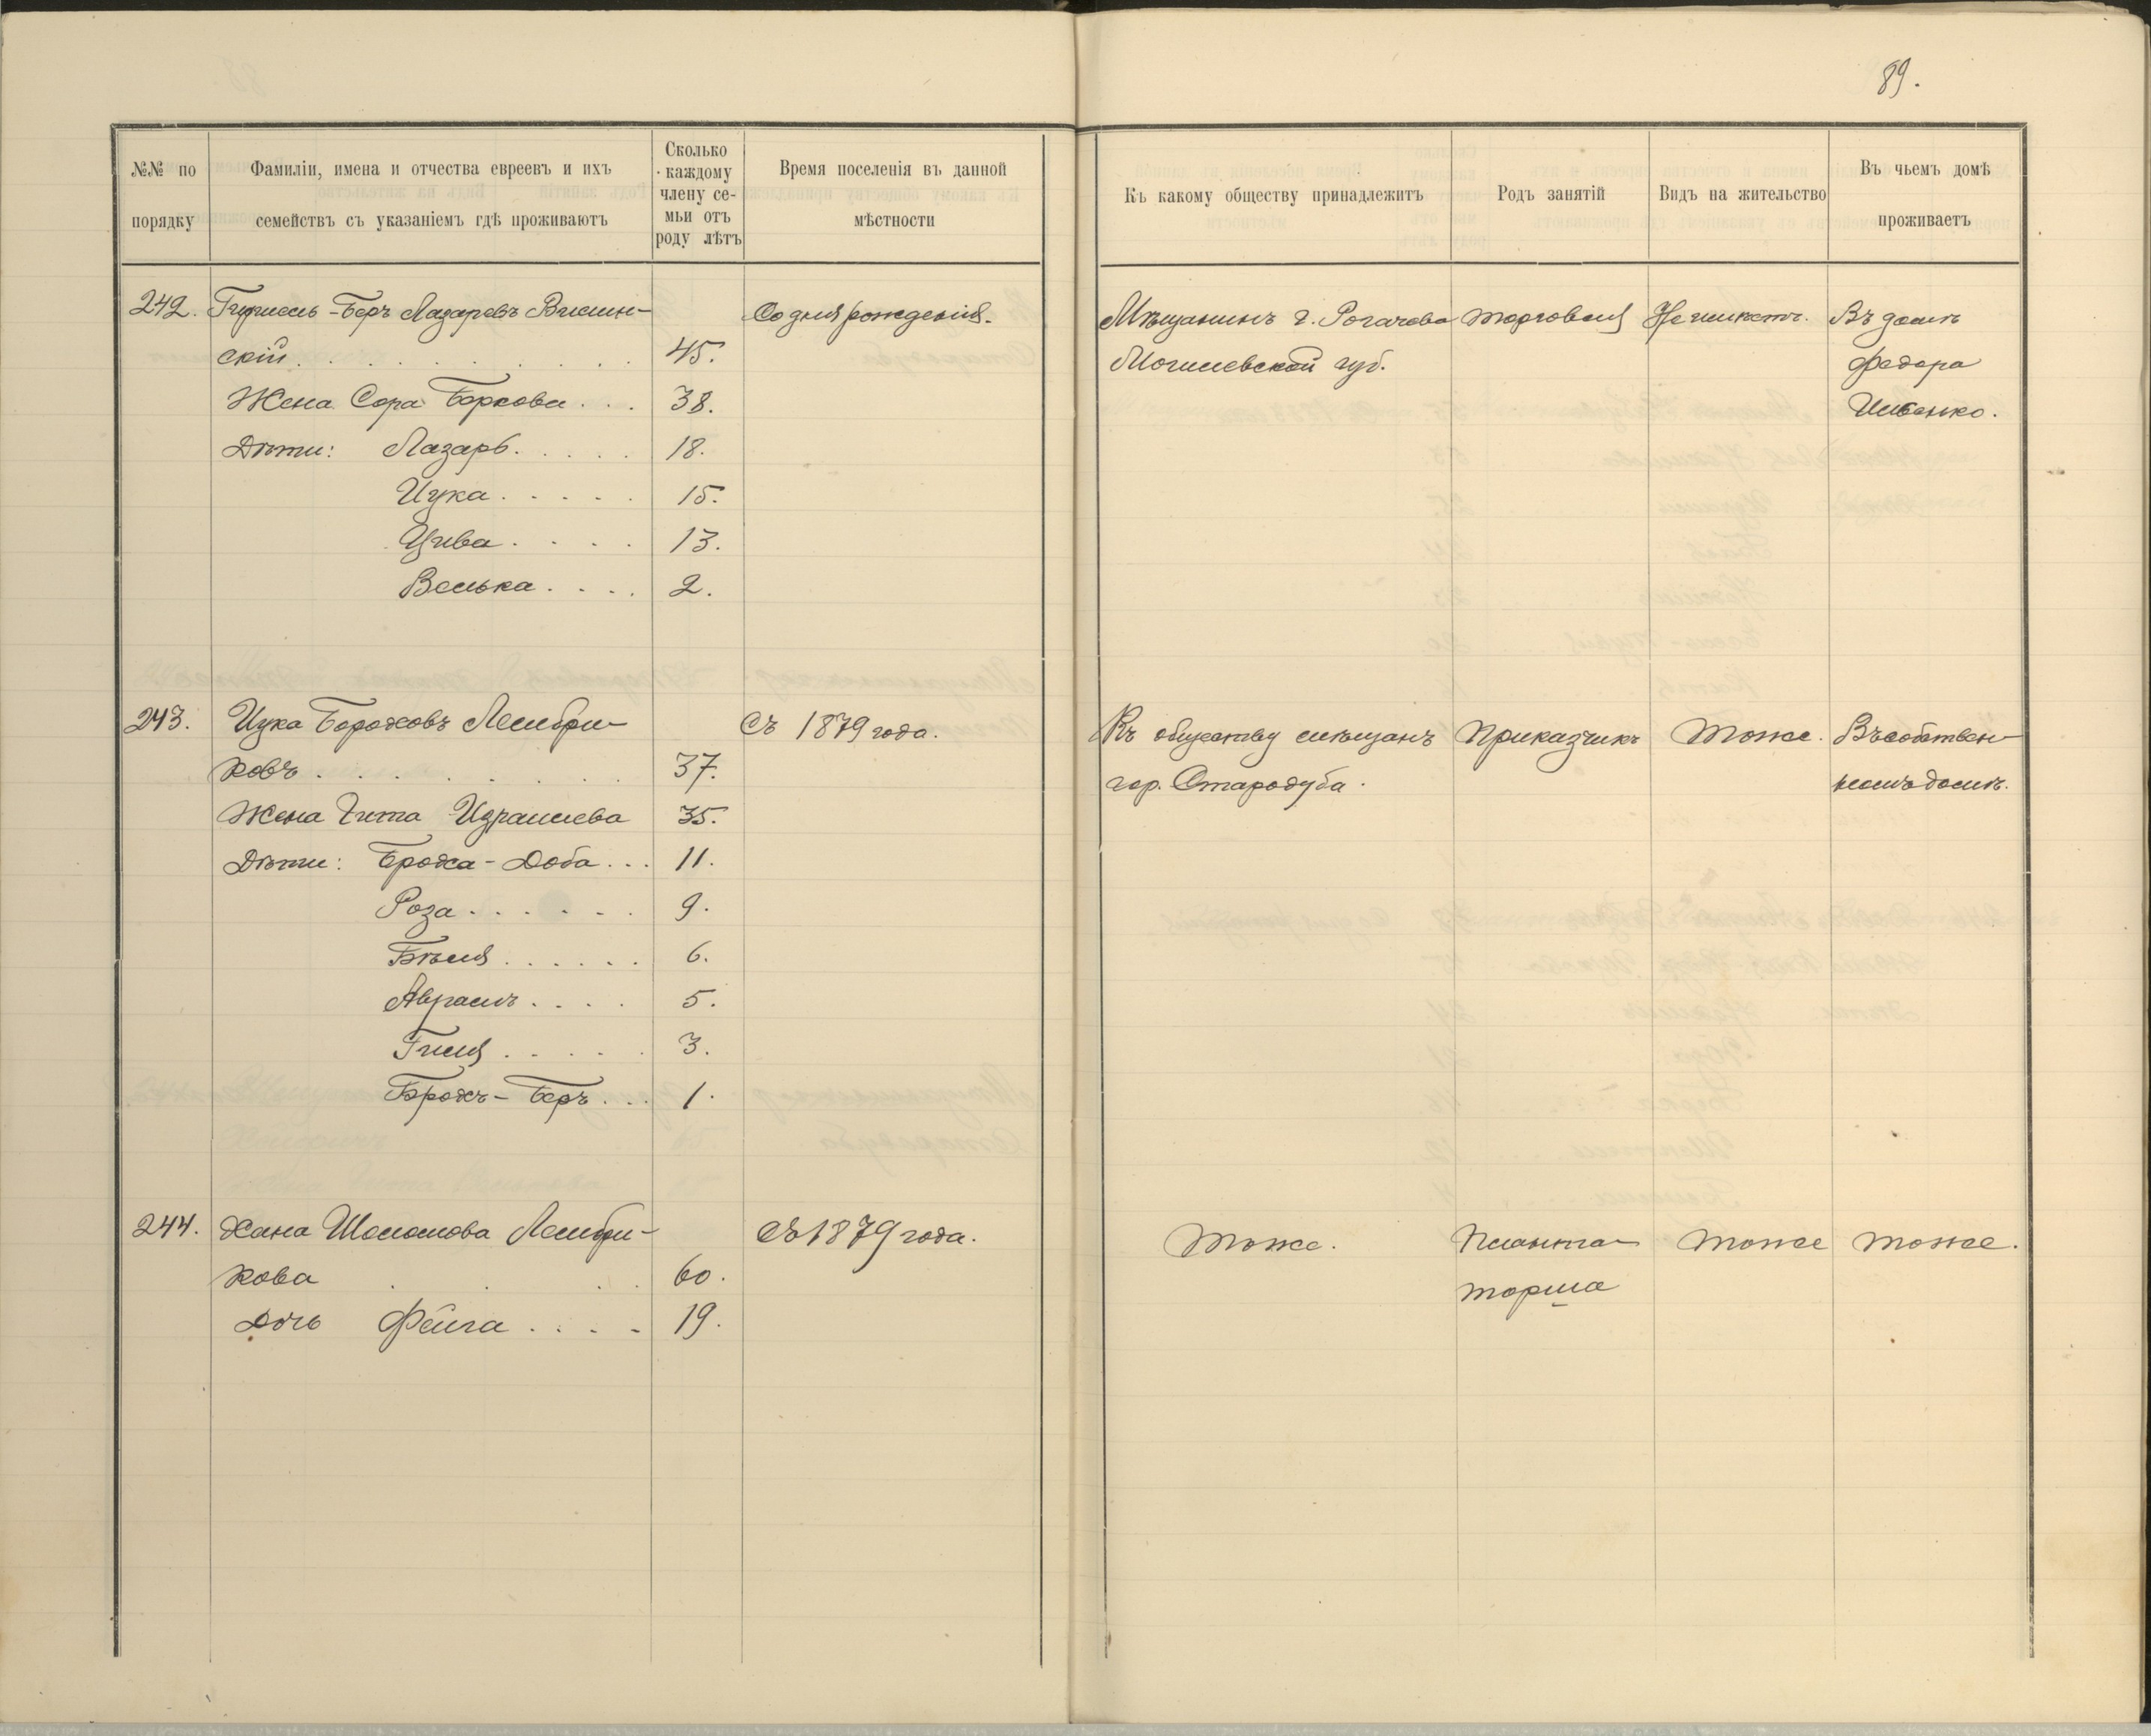 89.
№№ по порядку
Фамиліи, имена и отчества евреевъ и ихъ
семействъ съ указаніемъ гдѣ проживаютъ
Сколько
каждому
члену се-
мьи отъ
роду лѣтъ
Время поселенія въ данной
мѣстности
Къ какому обществу принадлежитъ
Родъ занятій
Видъ на жительство
Въ чьемъ домѣ
проживаетъ
242. -Беръ Лазаревъ Вилин- Со дня рожденія. Мѣщанинъ г. Рогачева торговля Не имѣетъ. Въ домѣ
скій 45. Могилевской губ. Федора
Жена Сора Беркова 38.
Дѣти: Лазарь 18.
Ицка 15.
Цива 13.
Велька 2.
243. Ицка Бороховъ Лембри- Съ 1879 года. Къ обществу мѣщанъ Приказчикъ Тоже. Въ собствен-
ковъ 37. гор. Стародуба. номъ домѣ.
Жена Гита Израилева 35.
Дѣти: Броха-Доба 11.
Роза 9.
Бѣля 6.
Аврамъ 5.
Гиля 3.
Брохъ-Беръ 1.
244. Хана Шоломова Лембри- Съ 1879 года. Тоже. Планта- Тоже Тоже.
кова 60. торша
Дочь Фейга 19.